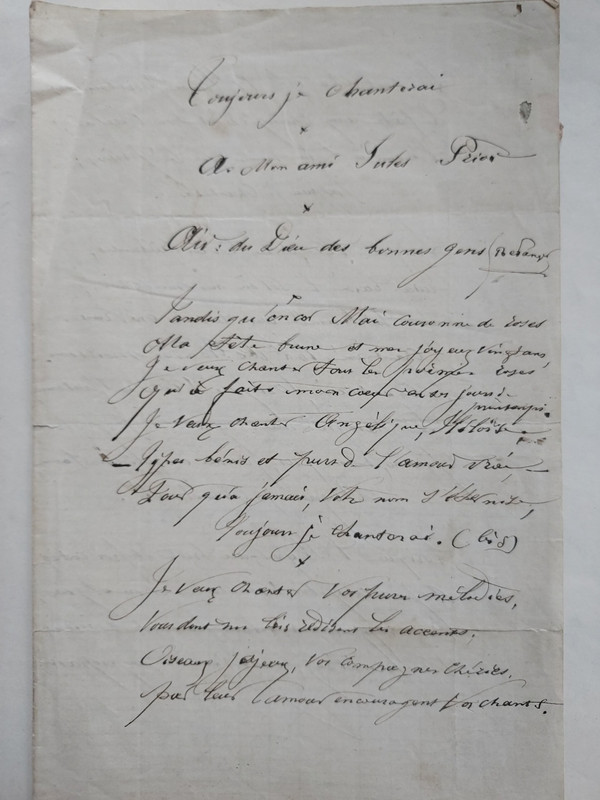 Toujours je chanterai
x
A Mon ami Jules Prior
x
Air : du Dieu des bonnes gens (Béranger)
Tandis qu'encor Mai couronne de roses
Ma tête brune et mes joyeux vingt ans,
Je Veux chanter tous les poèmes roses
Qu'a faits mon coeur en ses jours de
printemps.
Je Veux chanter Angélique, Héloïse
Types bénis et purs de l'amour vrai,
Pour qu'à jamais, votre nom s'éternise,
Toujours je chanterai. (bis)
x
Je Veux chanter Vos pures mélodies,
Vous dont nos bois redisent les accents,
Oiseaux joyeux, Vos compagnes chéries,
par leur amour encouragent Vos chants.